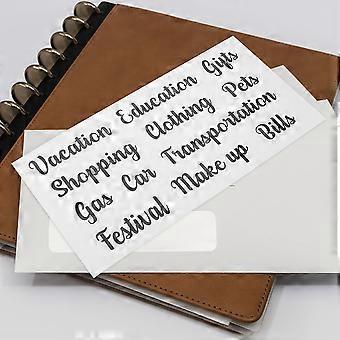 Vacation Education Gifts
Shopping Clothing Pets
Gas Car Transportation
Festival Make up Bills